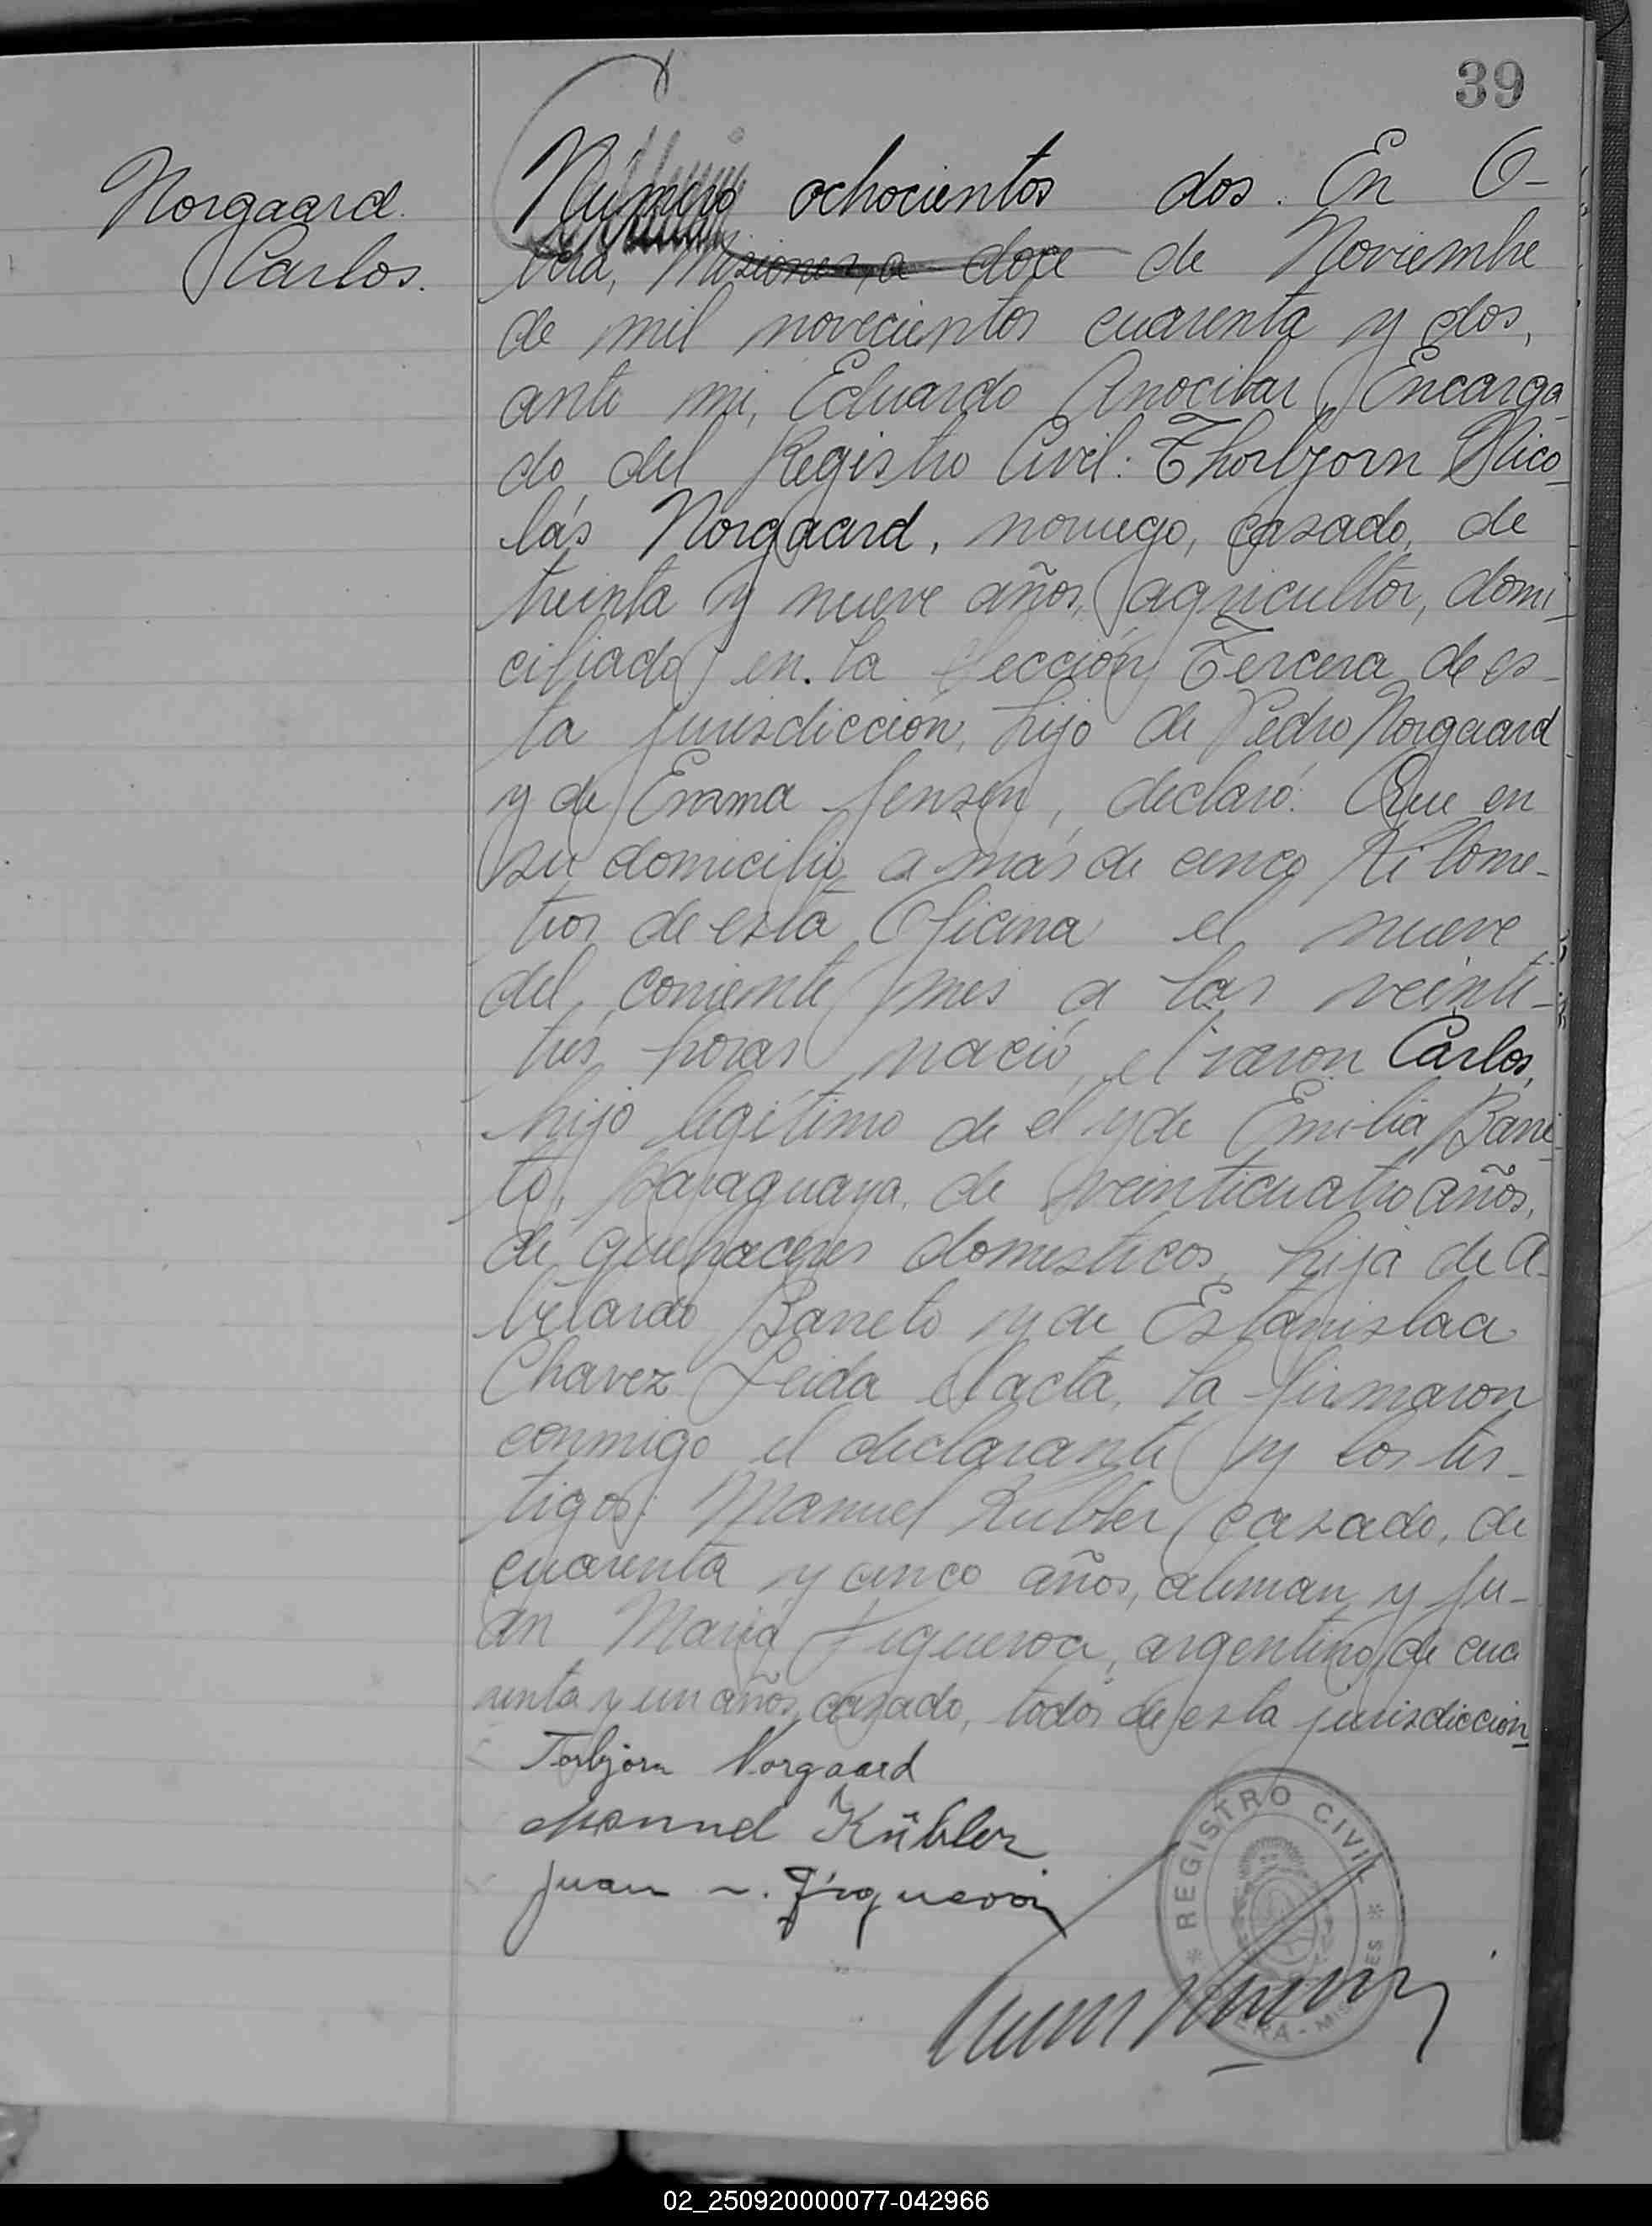 39
Norgaard
Carlos.
Número ochocientos dos. En O-
bera, Misiones, a doce de Noviembre
de mil novecientos cuarenta y dos,
ante mi, Eduardo Anocibar, Encarga-
do del Registro Civil: Thorbjorn Nico-
lás Norgaard, noruego, casado, de
treinta y nueve años, agricultor, domi-
ciliado en la Sección Tercera de es-
ta jurisdicción, hijo de Pedro Norgaard
y de Emma Jensen, declaró: Que en
su domicilio a más de cinco Kilome-
tros de esta Oficina el nueve
del corriente mes a las veinti-
trés horas nació el varon Carlos,
hijo legítimo de él y de Emilia Barre-
to, paraguaya, de veinticuatro años,
de quehaceres domesticos, hija de A-
belardo Barreto y de Estanislaa
Chavez. Leida el acta, la firmaron
conmigo el declarante y los tes-
tigos: Manuel Kubler, casado, de
cuarenta y cinco años, aleman y Ju-
an María Figueroa, argentino, de cua
renta y un años, casado, todos de esta jurisdicción
Torbjorn Norgaard
Manuel Kübler
Juan M. Figueroa
REGISTRO CIVIL
02_250920000077-042966